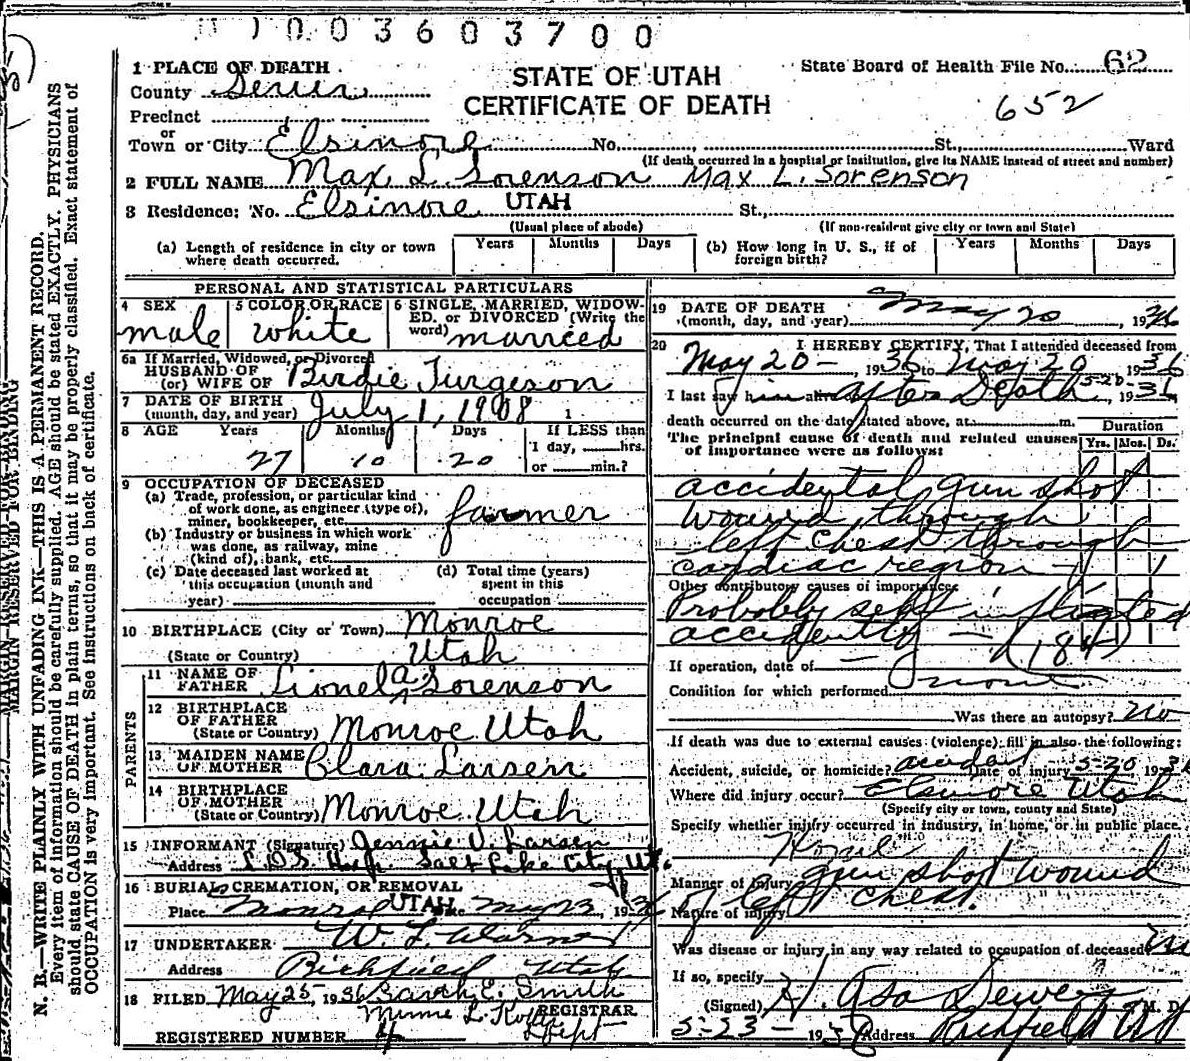 1003603700
1 PLACE OF DEATH
STATE OF UTAH
State Board of Health File No. 62
County Sevier
CERTIFICATE OF DEATH
652
Precinct
or
Town or City Elsinore No. , St., Ward
(If death occurred in a hospital or institution, give its NAME instead of street and number)
2 FULL NAME Max L. Sorenson Max L. Sorenson
3 Residence: No. Elsinore UTAH St.,
(Usual place of abode) (If non-resident give city or town and State)
(a) Length of residence in city or town where death occurred. Years Months Days (b) How long in U. S., if of foreign birth? Years Months Days
PERSONAL AND STATISTICAL PARTICULARS
4 SEX male
5 COLOR OR RACE white
6 SINGLE, MARRIED, WIDOWED, or DIVORCED (Write the word) married
6a If Married, Widowed, or Divorced
HUSBAND OF
(or) WIFE OF Birdie Turgeson
7 DATE OF BIRTH
(month, day, and year) July 1, 1908
8 AGE Years Months Days If LESS than
1 day, hrs.
27 10 20 or min.?
9 OCCUPATION OF DECEASED
(a) Trade, profession, or particular kind
of work done, as engineer (type of),
miner, bookkeeper, etc. farmer
(b) Industry or business in which work
was done, as railway, mine
(kind of), bank, etc.
(c) Date deceased last worked at
this occupation (month and
year)
(d) Total time (years)
spent in this
occupation
10 BIRTHPLACE (City or Town) Monroe
(State or Country) Utah
PARENTS
11 NAME OF
FATHER Lionel A Sorenson
12 BIRTHPLACE
OF FATHER
(State or Country) Monroe Utah
13 MAIDEN NAME
OF MOTHER Clara Larsen
14 BIRTHPLACE
OF MOTHER
(State or Country) Monroe Utah
15 INFORMANT (Signature) Jennie V. Larsen
Address L.D.S. Hosp. Salt Lake City Ut.
16 BURIAL, CREMATION, OR REMOVAL
Place Monroe UTAH Date May 23, 1936
17 UNDERTAKER W. L. Warner
Address Richfield Utah
18 FILED May 25, 1936 Sarah E. Smith
Minnie L. REGISTRAR
REGISTERED NUMBER 4 Dept
19 DATE OF DEATH
(month, day, and year) May 20, 1936
20 I HEREBY CERTIFY, That I attended deceased from
May 20 - , 1936 to May 20 1936
I last saw him alive after Death 5-20-, 1936
death occurred on the date stated above, at m.
Duration
The principal cause of death and related causes
of importance were as follows:
Yrs. Mos. Ds.
accidental gun shot
wound, through
left chest through
cardiac region -
Other contributory causes of importance
Probably self inflicted
accidently - (184)
If operation, date of -
Condition for which performed none
Was there an autopsy? no
If death was due to external causes (violence) fill in also the following:
Accident, suicide, or homicide? accident Date of injury 5-20 1936
Where did injury occur? Elsinore Utah
(Specify city or town, county and State)
Specify whether injury occurred in industry, in home, or in public place.
Home
Manner of injury gun shot wound
Nature of injury of left chest.
Was disease or injury in any way related to occupation of deceased? no
If so, specify
(Signed) H. Asa Dewey M. D.
5-23- 1936 Address Richfield Ut
MARGIN RESERVED FOR BINDING
N. B.—WRITE PLAINLY WITH UNFADING INK—THIS IS A PERMANENT RECORD.
Every item of information should be carefully supplied. AGE should be stated EXACTLY. PHYSICIANS
should state CAUSE OF DEATH in plain terms, so that it may be properly classified. Exact statement of
OCCUPATION is very important. See instructions on back of certificate.